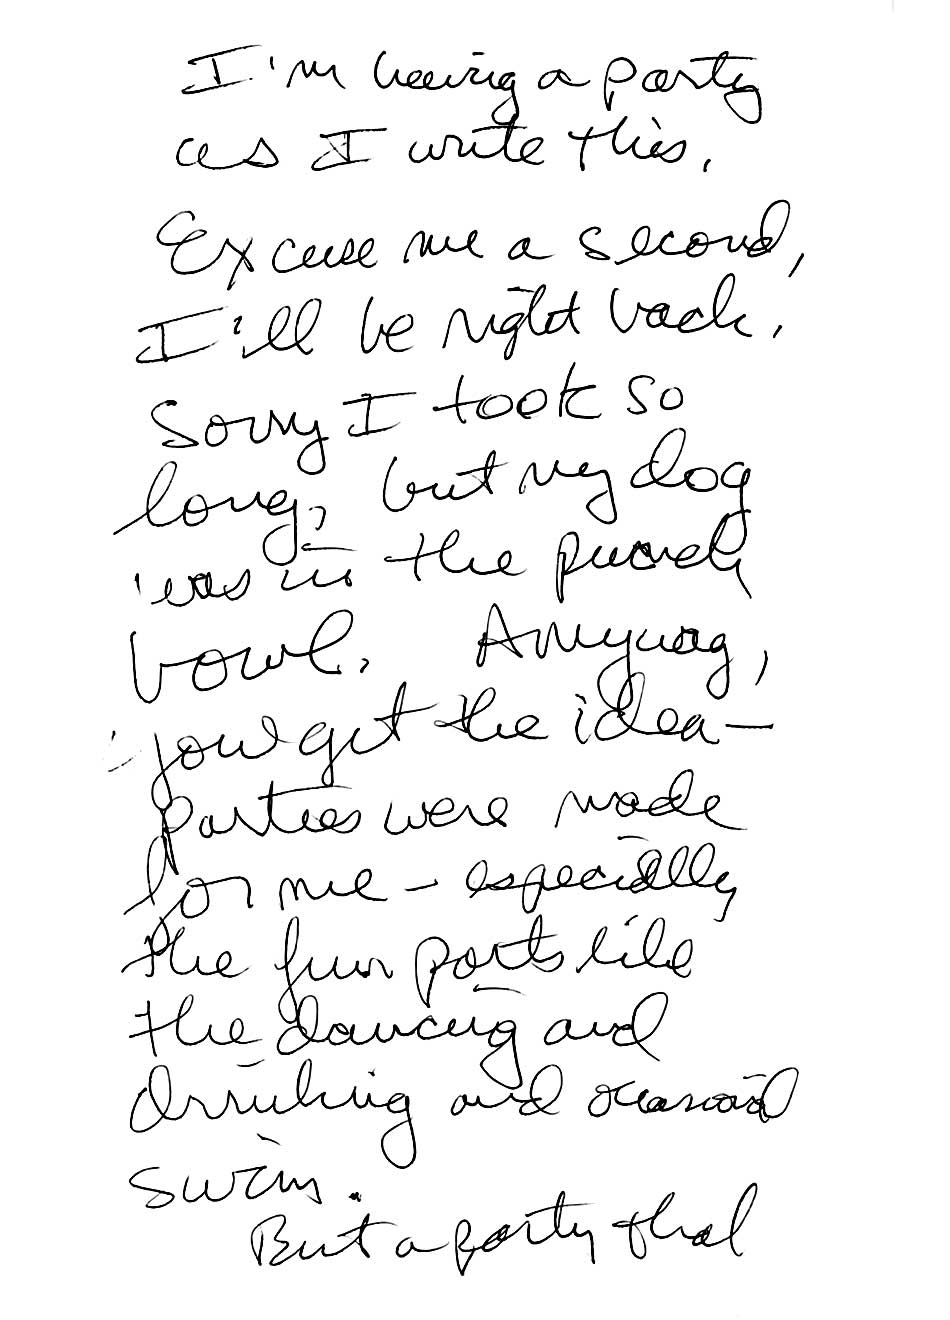 I'm having a party
as I write this.
Excuse me a second,
I'll be right back.
Sorry I took so
long, but my dog
was in the punch
bowl. Anyway,
you get the idea—
parties were made
for me - especially
the fun parts like
the dancing and
drinking and occasional
swim.
But a party that